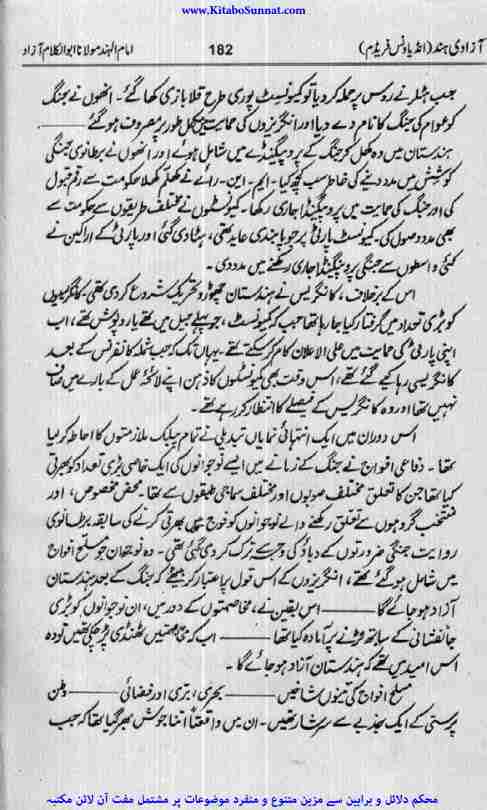 www.KitaboSunnat.com
آزادی ہند (انڈیا ونس فریڈم) 182 امام الہند مولانا ابوالکلام آزاد
جب ہٹلر نے روس پر حملہ کر دیا تو کمیونسٹ پوری طرح قلابازی کھا گئے۔ انھوں نے جنگ
کو عوام کی جنگ کا نام دے دیا اور انگریزوں کی حمایت میں مکمل طور پر مصروف ہو گئے ——
ہندستان میں وہ کھل کر جنگ کے پروپیگنڈے میں شامل ہوئے اور انھوں نے برطانوی جنگی
کوشش میں مدد دینے کی خاطر سب کچھ کیا۔ ایم۔ این۔ رائے نے کھلم کھلا حکومت سے رقم قبول
کی اور جنگ کی حمایت میں پروپیگنڈا جاری رکھا۔ کمیونسٹوں نے مختلف طریقوں سے حکومت سے
بھی مدد وصول کی۔ کمیونسٹ پارٹی پر جو پابندی عاید تھی، ہٹا دی گئی اور پارٹی کے اراکین نے
کئی واسطوں سے جنگی پروپیگنڈا جاری رکھنے میں مدد دی۔
اس کے برخلاف، کانگریس نے ہندستان چھوڑو تحریک شروع کر دی تھی، کانگریسیوں
کو بڑی تعداد میں گرفتار کیا جا رہا تھا جب کہ کمیونسٹ، جو پہلے جیل میں تھے یا روپوش تھے، اب
اپنی پارٹی کی حمایت میں علی الاعلان کام کر سکتے تھے۔ یہاں تک کہ جب شملہ کانفرنس کے بعد
کانگریسی رہا کیے گئے تھے، اس وقت بھی کمیونسٹوں کا ذہن اپنے لائحۂ عمل کے بارے میں صاف
نہیں تھا اور وہ کانگریس کے فیصلے کا انتظار کر رہے تھے۔
اس دوران میں ایک انتہائی نمایاں تبدیلی نے تمام پبلک ملازمتوں کا احاطہ کر لیا
تھا۔ دفاعی افواج نے جنگ کے زمانے میں ایسے نوجوانوں کی ایک خاصی بڑی تعداد کو بھرتی
کیا تھا جن کا تعلق مختلف صوبوں اور مختلف سماجی طبقوں سے تھا۔ محض مخصوص، اور
منتخب گروہوں سے تعلق رکھنے والے نوجوانوں کو فوج میں بھرتی کرنے کی سابقہ برطانوی
روایت جنگی ضرورتوں کے دباؤ کی وجہ سے ترک کر دی گئی تھی۔ وہ نوجوان جو مسلح افواج
میں شامل ہو گئے تھے، انگریزوں کے اس قول پر اعتبار کر بیٹھے کہ جنگ کے بعد ہندستان
آزاد ہو جائے گا —— اس یقین نے، مخاصمتوں کے دور میں، ان نوجوانوں کو بڑی
جانفشانی کے ساتھ لڑنے پر آمادہ کیا تھا —— اب کہ مخاصمتیں ٹھنڈی پڑ چکی تھیں تو وہ
اس امید میں تھے کہ ہندستان آزاد ہو جائے گا۔
مسلح افواج کی تینوں شاخیں —— بحری، بری اور فضائی —— وطن
پرستی کے ایک جذبے سے سرشار تھیں۔ ان میں واقعتاً اتنا جوش بھر گیا تھا کہ جب
محکم دلائل و براہین سے مزین متنوع و منفرد موضوعات پر مشتمل مفت آن لائن مکتبہ